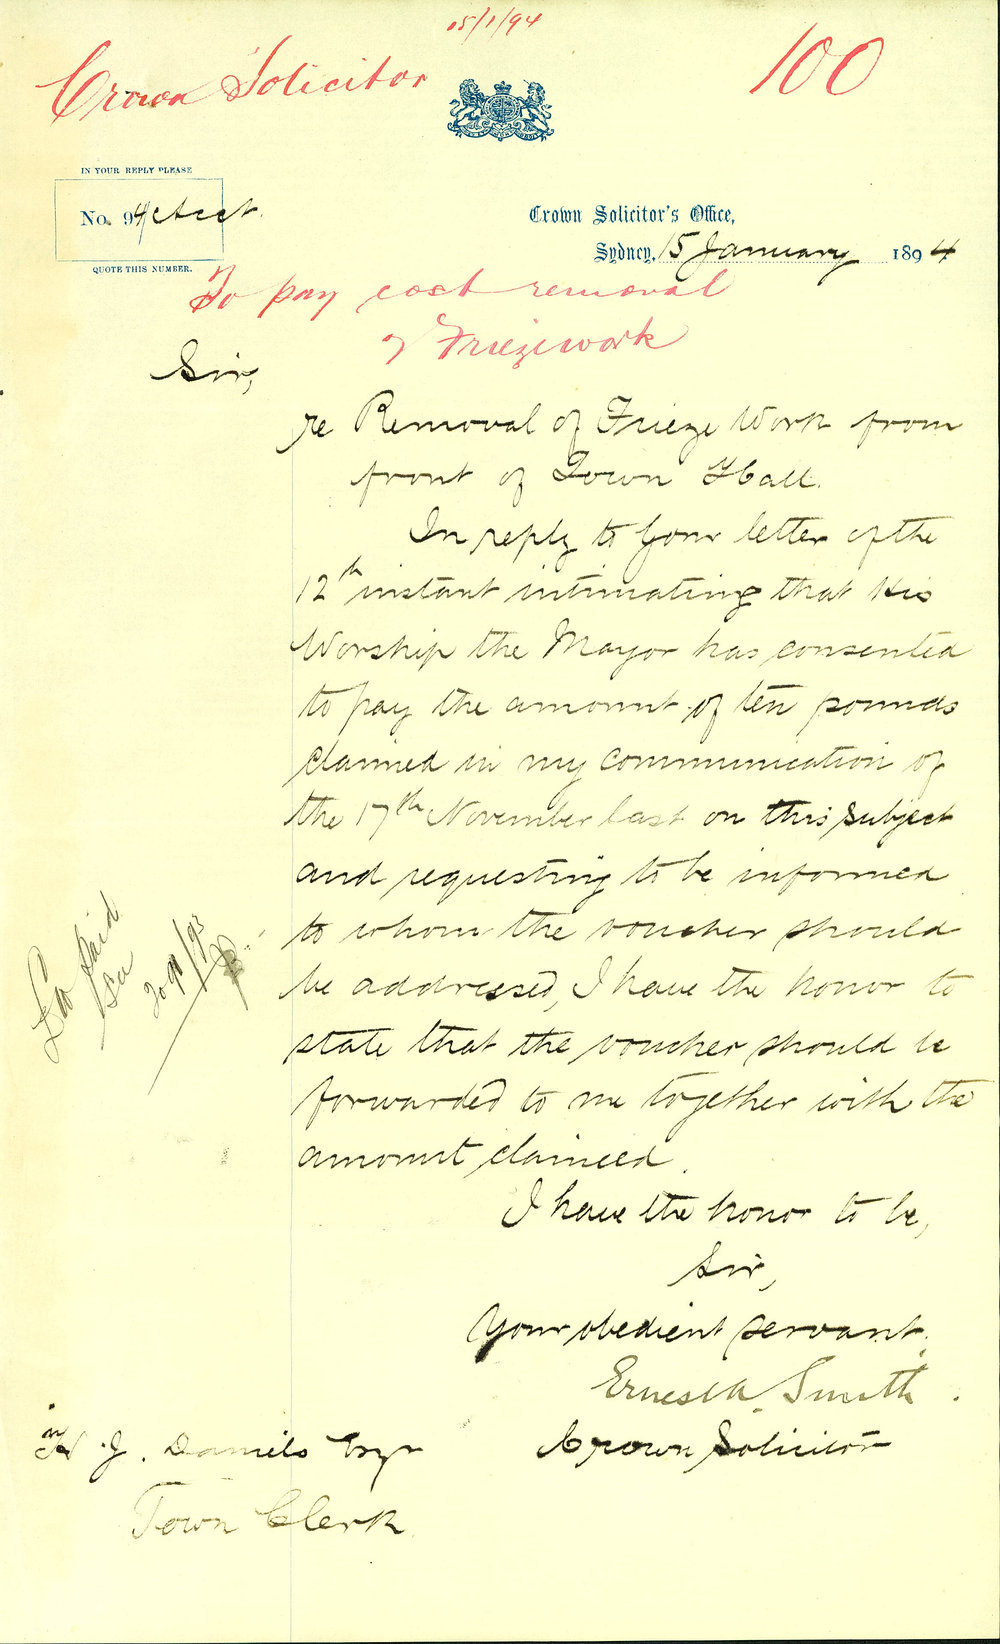 15/1/94
Crown Solicitor
100
IN YOUR REPLY PLEASE
No. 94/Acct.
QUOTE THIS NUMBER.
Crown Solicitor's Office,
Sydney, 15 January 1894
To pay cost removal
of Friezework
Sir,
re Removal of Frieze Work from
front of Town Hall.
In reply to your letter of the
12th instant intimating that His
Worship the Mayor has consented
to pay the amount of ten pounds
claimed in my communication of
the 17th November last on this subject
and requesting to be informed
to whom the voucher should
be addressed, I have the honor to
state that the voucher should be
forwarded to me together with the
amount claimed.
I have the honor to be,
Sir,
Your obedient servant,
Ernest A. Smith.
Crown Solicitor
£10 paid
H. J. Daniels Esqr
Town Clerk